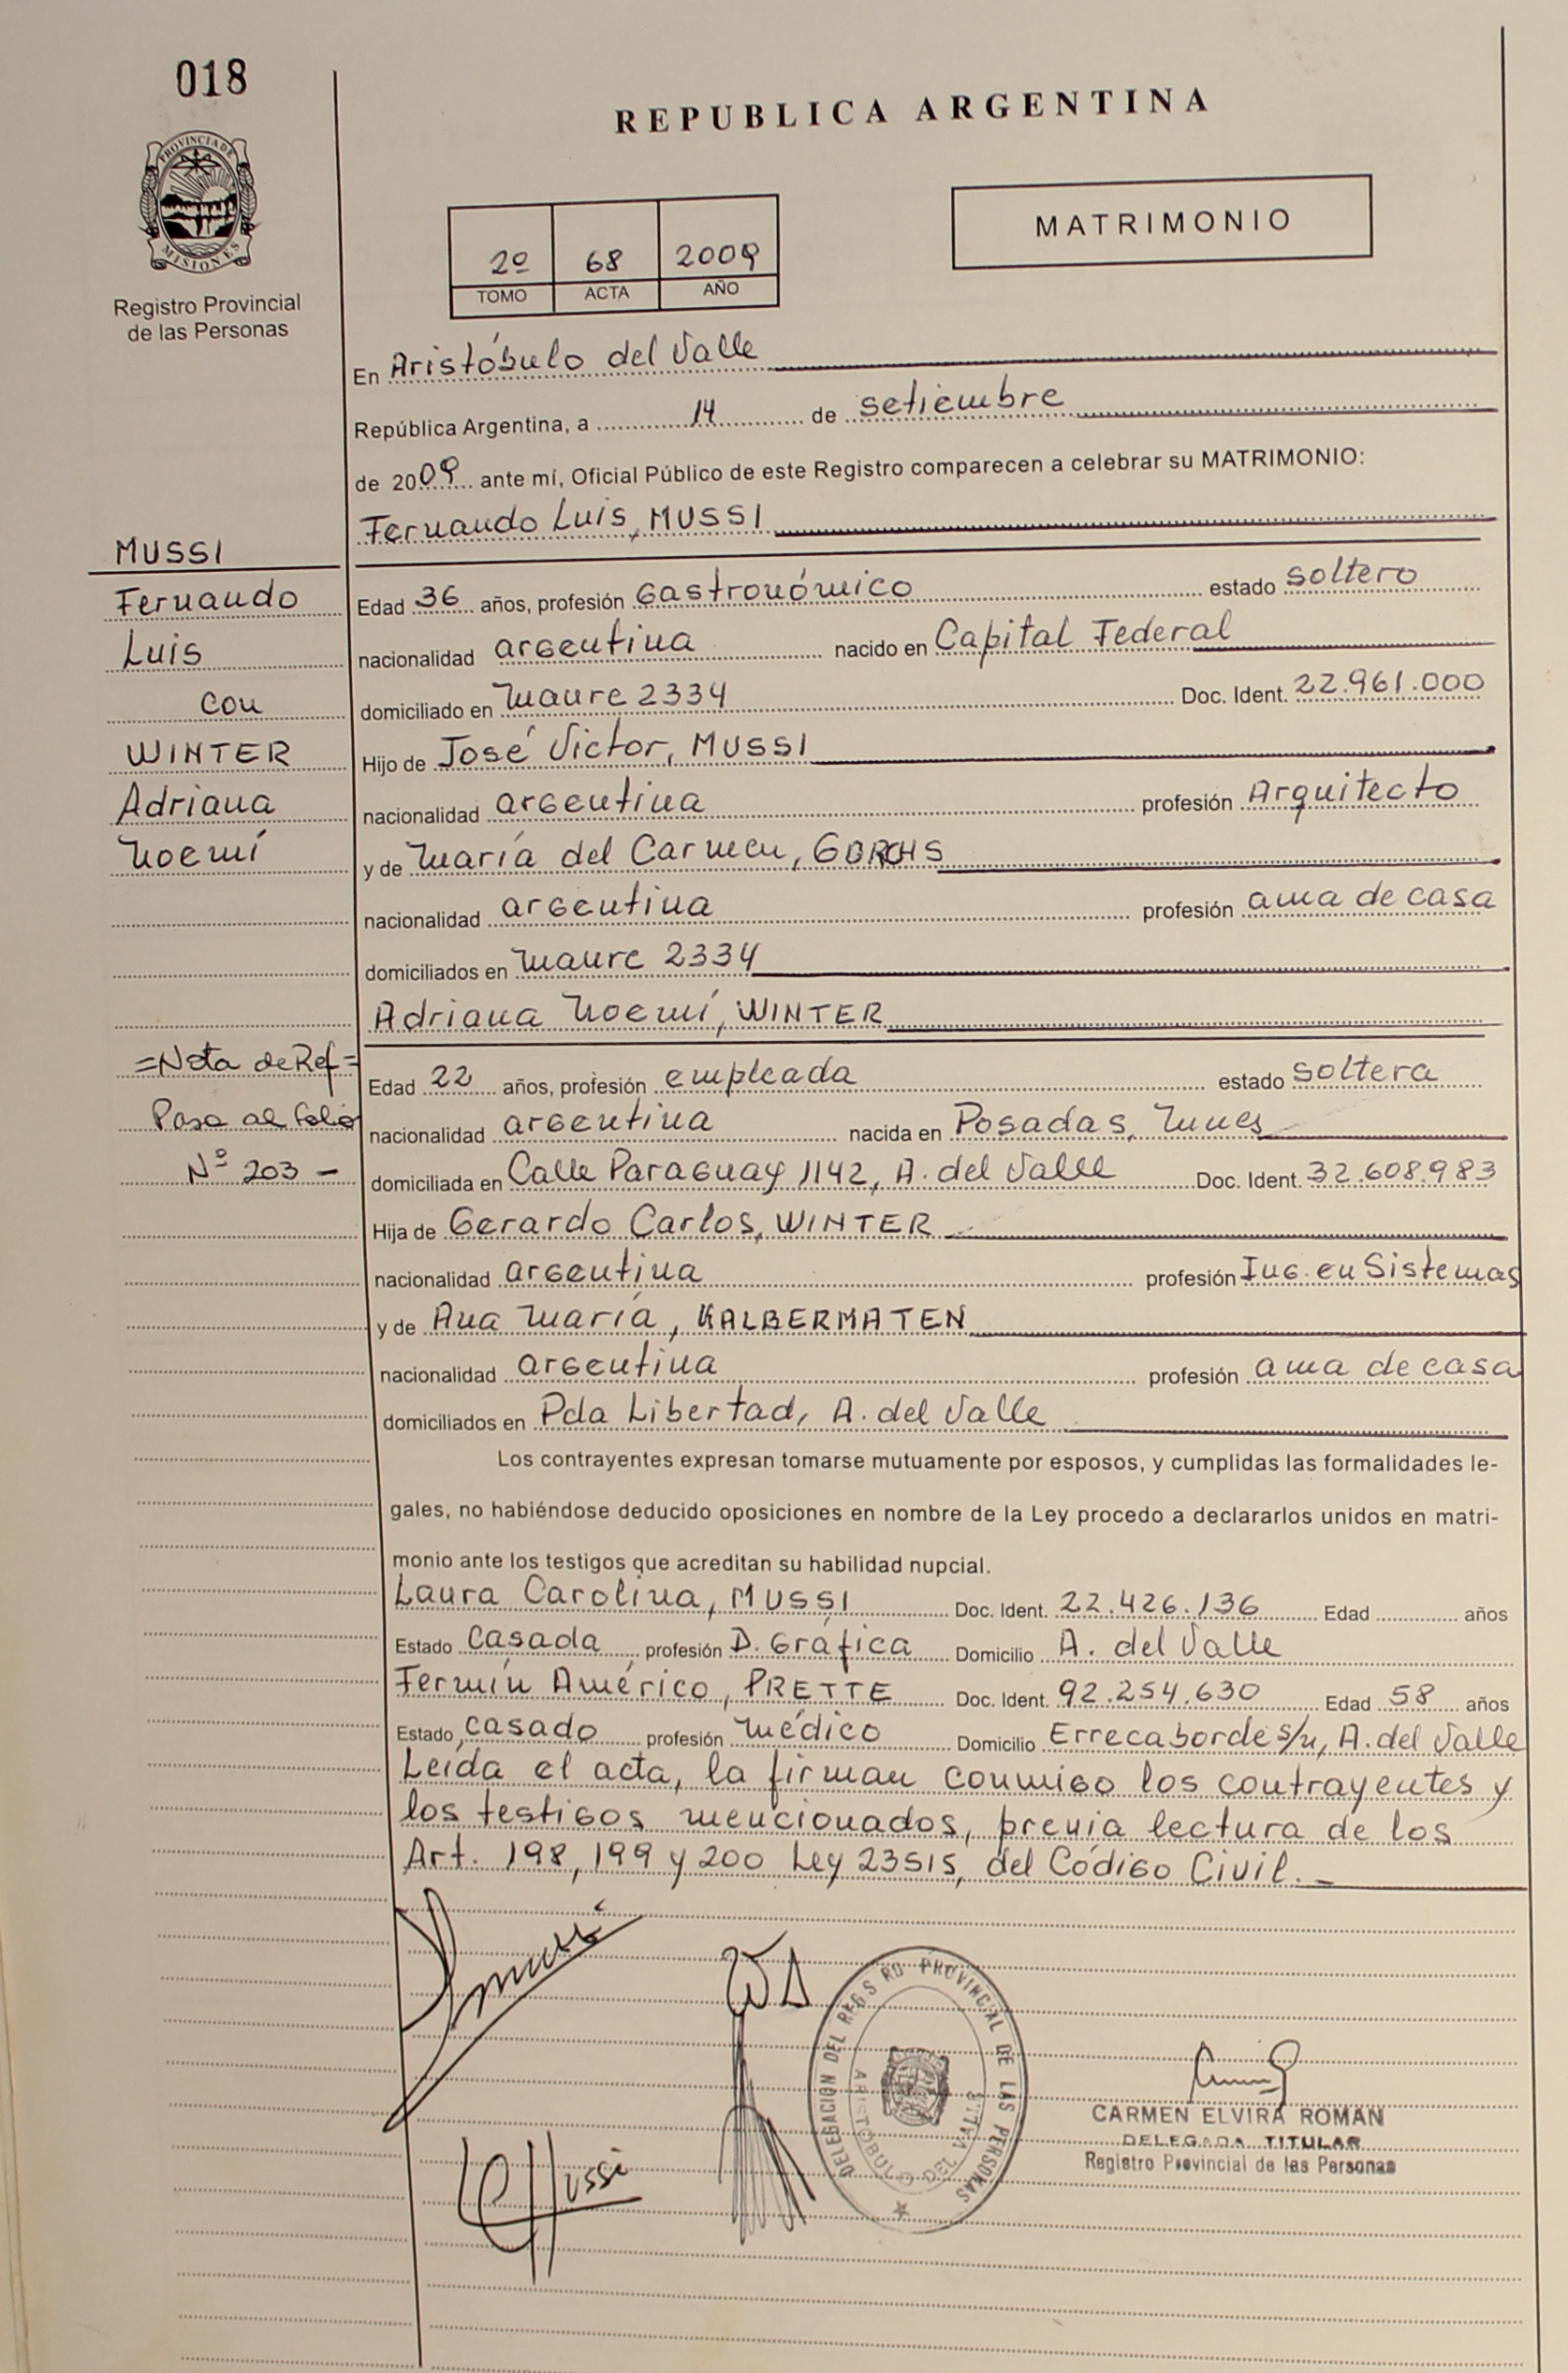 018
REPUBLICA ARGENTINA
PROVINCIA DE
MISIONES
Registro Provincial
de las Personas
2º 68 2009
TOMO ACTA AÑO
MATRIMONIO
En Aristóbulo del Valle
República Argentina, a 14 de setiembre
de 2009 ante mí, Oficial Público de este Registro comparecen a celebrar su MATRIMONIO:
Fernando Luis, MUSSI
MUSSI
Fernando
Luis
con
WINTER
Adriana
Noemí
Edad 36 años, profesión Gastronómico estado soltero
nacionalidad argentina nacido en Capital Federal
domiciliado en Maure 2334 Doc. Ident. 22.961.000
Hijo de José Victor, MUSSI
nacionalidad argentina profesión Arquitecto
y de María del Carmen, GORCHS
nacionalidad argentina profesión ama de casa
domiciliados en Maure 2334
Adriana Noemí, WINTER
=Nota de Ref=
Pasa al folio
Nº 203 -
Edad 22 años, profesión empleada estado soltera
nacionalidad argentina nacida en Posadas, Mnes
domiciliada en Calle Paraguay 1142, A. del Valle Doc. Ident. 32.608.983
Hija de Gerardo Carlos, WINTER
nacionalidad argentina profesión Ing. en Sistemas
y de Ana María, KALBERMATEN
nacionalidad argentina profesión ama de casa
domiciliados en Pda Libertad, A. del Valle
Los contrayentes expresan tomarse mutuamente por esposos, y cumplidas las formalidades le-
gales, no habiéndose deducido oposiciones en nombre de la Ley procedo a declararlos unidos en matri-
monio ante los testigos que acreditan su habilidad nupcial.
Laura Carolina, MUSSI Doc. Ident. 22.426.136 Edad años
Estado casada profesión D. Gráfica Domicilio A. del Valle
Fermín Américo, PRETTE Doc. Ident. 92.254.630 Edad 58 años
Estado casado profesión Médico Domicilio Errecaborde s/n, A. del Valle
Leída el acta, la firman conmigo los contrayentes y
los testigos mencionados, previa lectura de los
Art. 198, 199 y 200 Ley 23515, del Código Civil.-
DELEGACION DEL REGISTRO PROVINCIAL DE LAS PERSONAS
ARISTOBULO DEL VALLE
Mussi
CARMEN ELVIRA ROMAN
DELEGADA TITULAR
Registro Provincial de las Personas